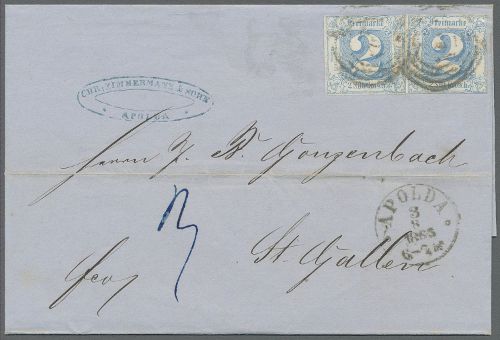 Freimarke Freimarke
2 2
2 Silbergr.
CHR. ZIMMERMANN & SOHN
APOLDA
Herrn J. B. Gonzenbach
APOLDA.
3
8
1863
6–7
St. Gallen
fco
3